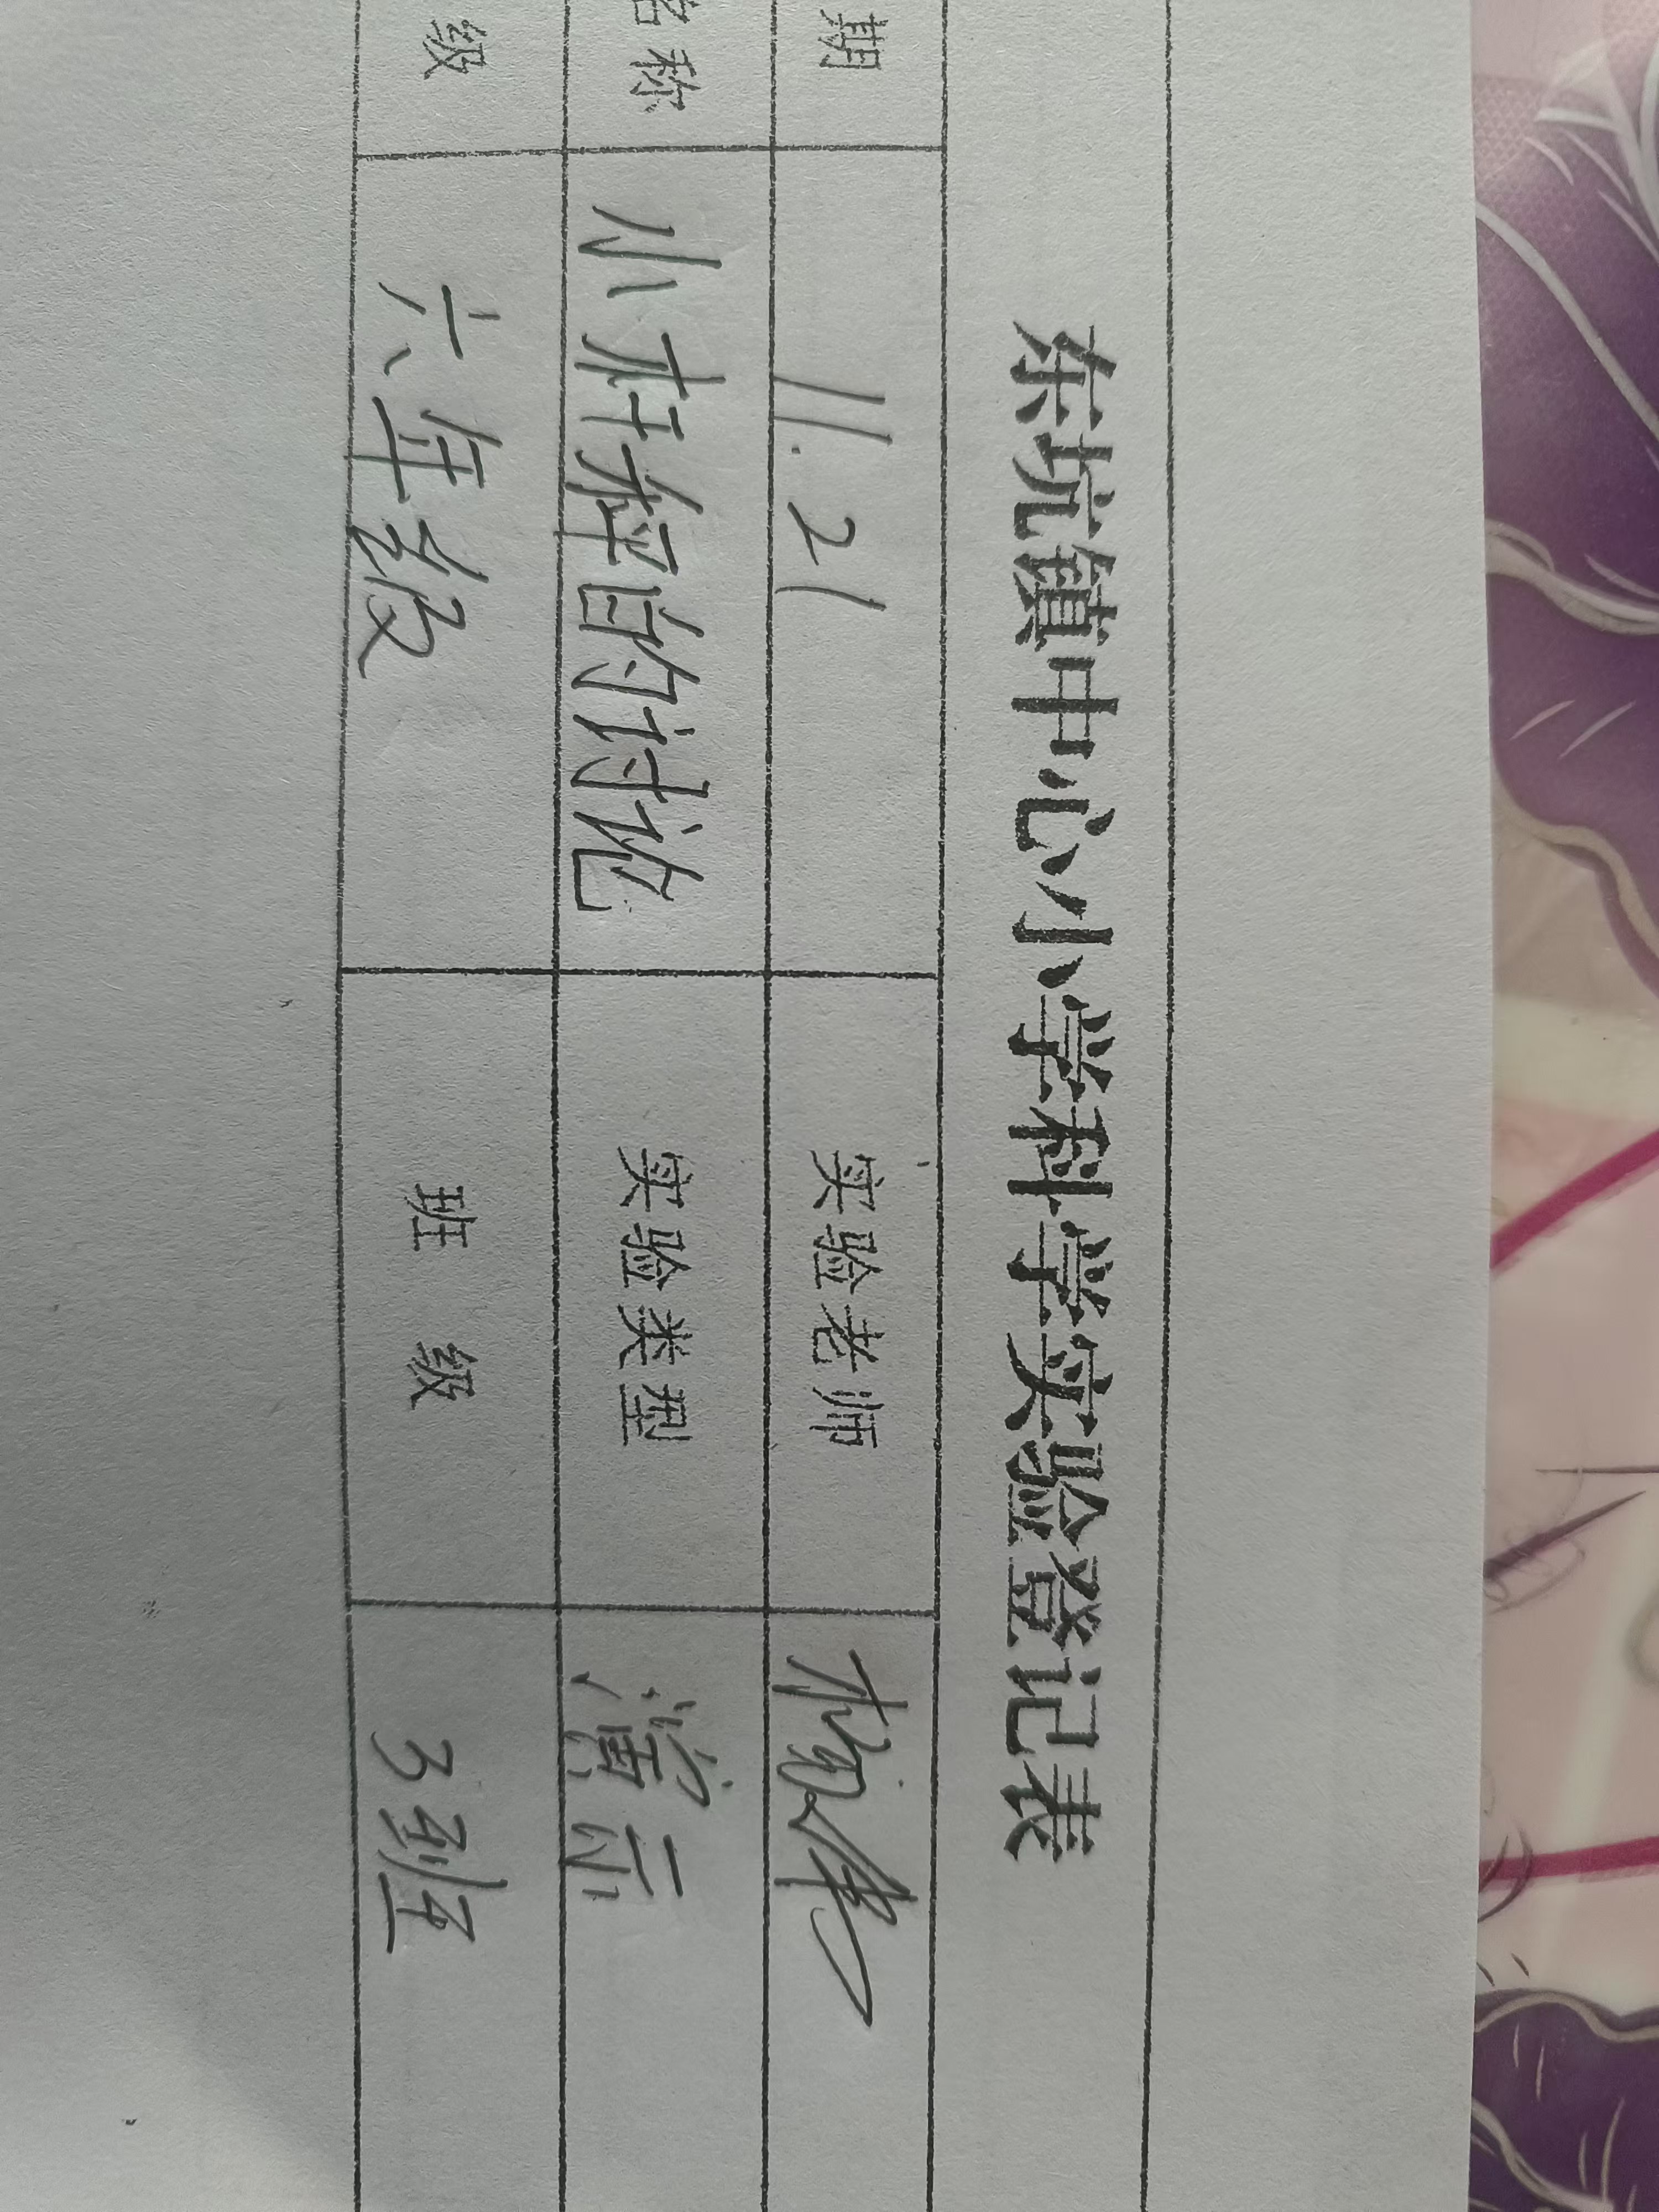 东坑镇中心小学科学实验登记表
期 11.21 实验老师
名称 小杆秤的讨论 实验类型 演示
级 六年级 班 级 3班